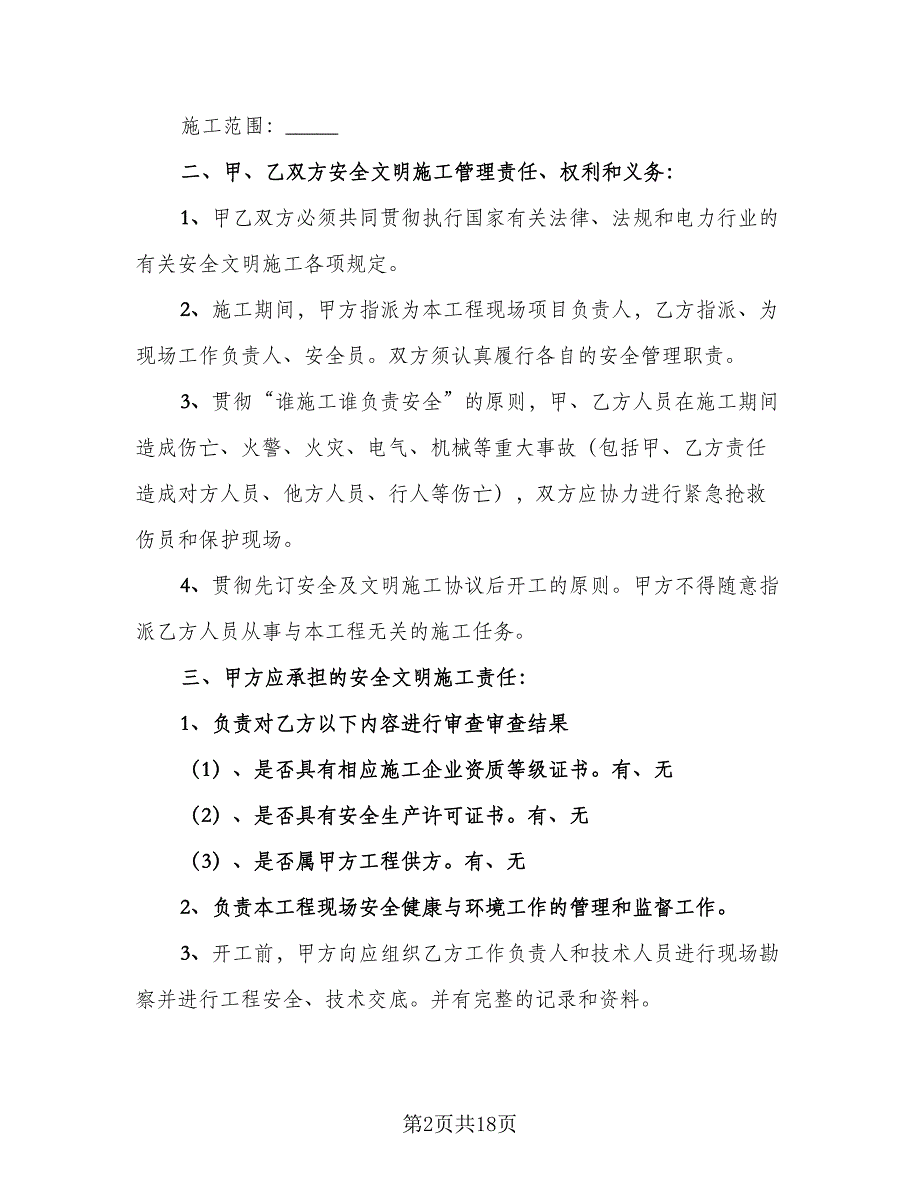 施工范围：_____
二、甲、乙双方安全文明施工管理责任、权利和义务：
1、甲乙双方必须共同贯彻执行国家有关法律、法规和电力行业的
有关安全文明施工各项规定。
2、施工期间，甲方指派为本工程现场项目负责人，乙方指派、为
现场工作负责人、安全员。双方须认真履行各自的安全管理职责。
3、贯彻“谁施工谁负责安全”的原则，甲、乙方人员在施工期间
造成伤亡、火警、火灾、电气、机械等重大事故（包括甲、乙方责任
造成对方人员、他方人员、行人等伤亡），双方应协力进行紧急抢救
伤员和保护现场。
4、贯彻先订安全及文明施工协议后开工的原则。甲方不得随意指
派乙方人员从事与本工程无关的施工任务。
三、甲方应承担的安全文明施工责任：
1、负责对乙方以下内容进行审查审查结果
（1）、是否具有相应施工企业资质等级证书。有、无
（2）、是否具有安全生产许可证书。有、无
（3）、是否属甲方工程供方。有、无
2、负责本工程现场安全健康与环境工作的管理和监督工作。
3、开工前，甲方向应组织乙方工作负责人和技术人员进行现场勘
察并进行工程安全、技术交底。并有完整的记录和资料。
第2页共18页